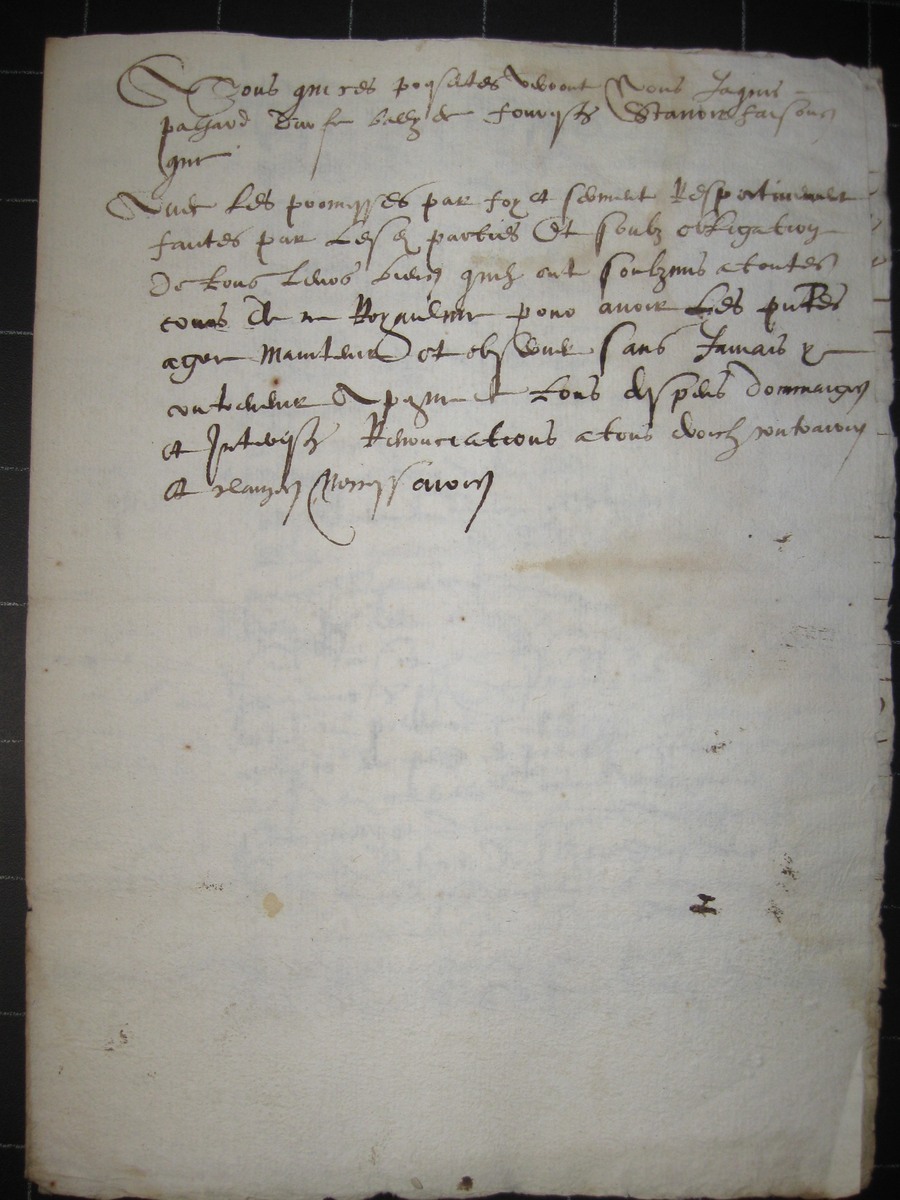 A Tous qui ces presentes verront Nous Jaques
palhard bailly de scavoir faisons
que
Avec Les promesses par foy et serment Respectivement
faites par Lesd parties Et soubz obligation
De tous leurs biens quilz ont soubzmis a toutes
cours de ce Royaulme pour avoir Les pntes
agre maintenir et observer sans Jamais y
contrevenir A peyne de tous despens Dommaiges
et Interestz Renonciations a tous droictz contraires
et clauses Necessaires